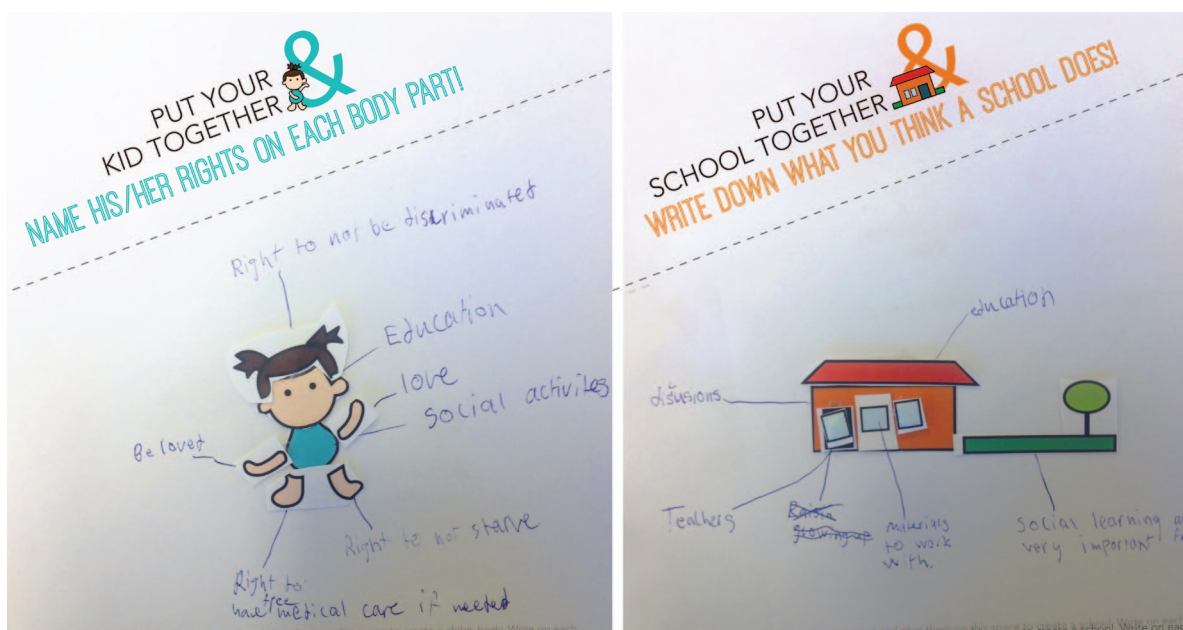 PUT YOUR
KID TOGETHER
&
NAME HIS/HER RIGHTS ON EACH BODY PART!
Right to not be discriminated
Education
love
social activites
Be loved
Right to not starve
Right to
free
have medical care if needed
PUT YOUR
SCHOOL TOGETHER
&
WRITE DOWN WHAT YOU THINK A SCHOOL DOES!
education
disusions
Teachers
growing up
to work
with.
social learning
very important